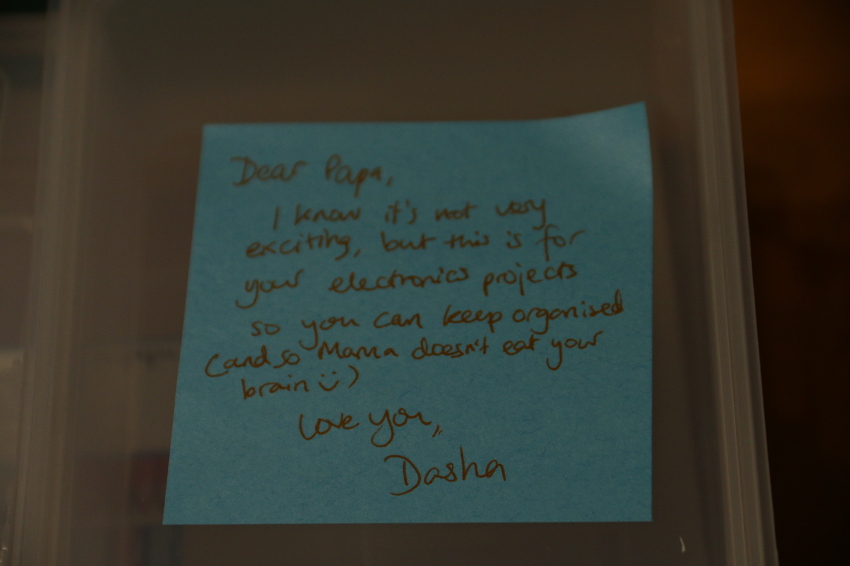 Dear Papa,
I know it's not very
exciting, but this is for
your electronics projects
so you can keep organised
(and so Mama doesn't eat your
brain :))
Love you,
Dasha